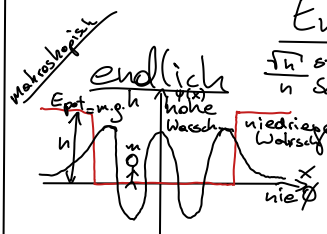 makroskopisch
En
endlich
√n
n
Epot=m.g.h
ψ(x)
hohe
Warsch.
niedrige
Wahrsch
h
m
x
nie ∅